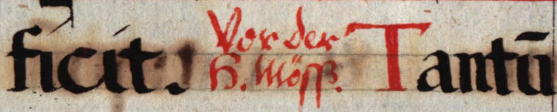 ficit. Vor der H. Mässe. Tantū